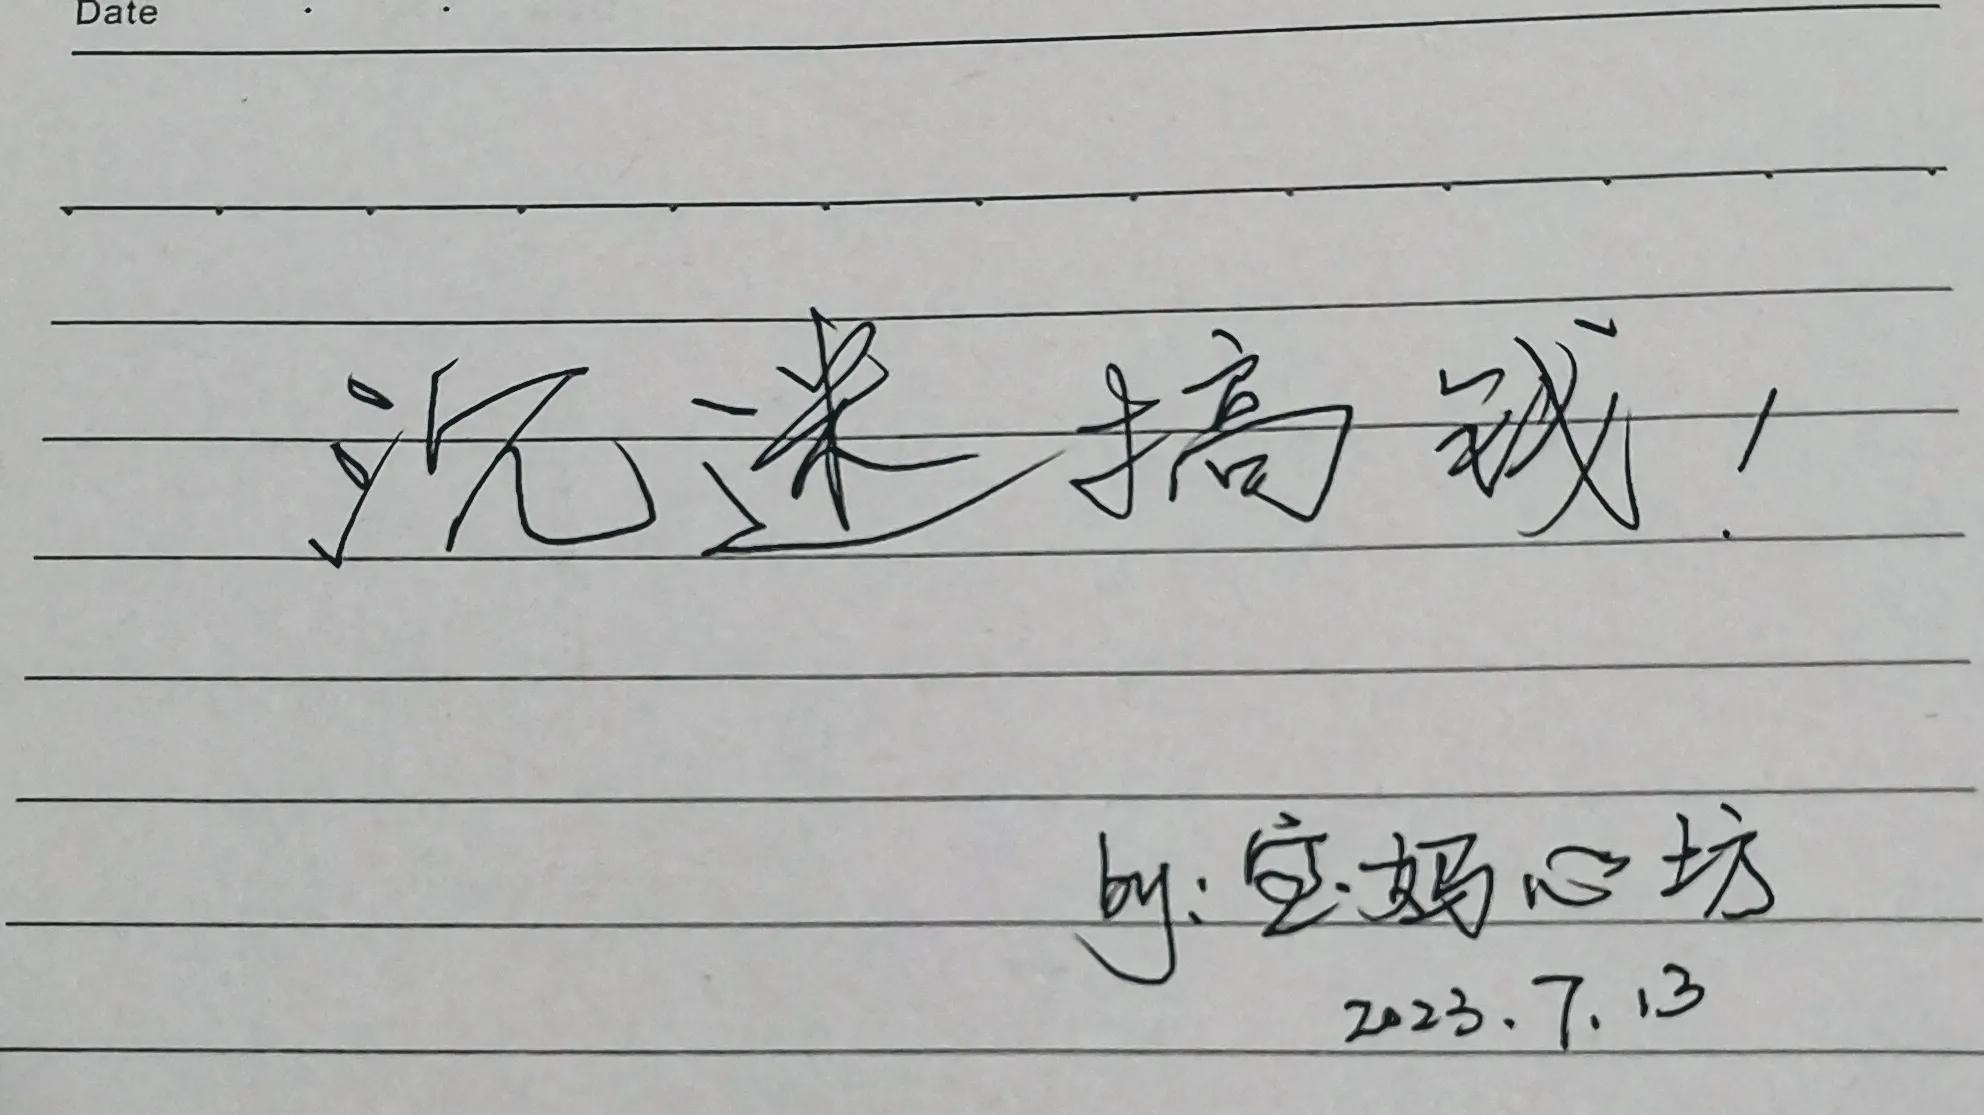 Date
沉迷搞钱!
by:宝妈心坊
2023.7.13